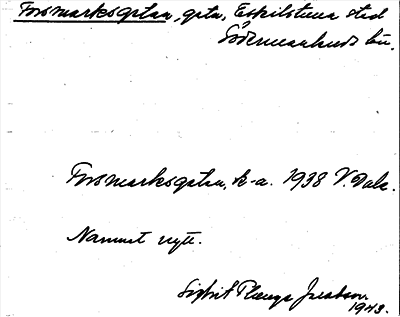 Forsmarksgatan, gata, Eskilstuna stad
Södermanlands län.
Forsmarksgatan, k-a. 1938 V. Dal.
Namnet nytt.
Jacobson.
1943.